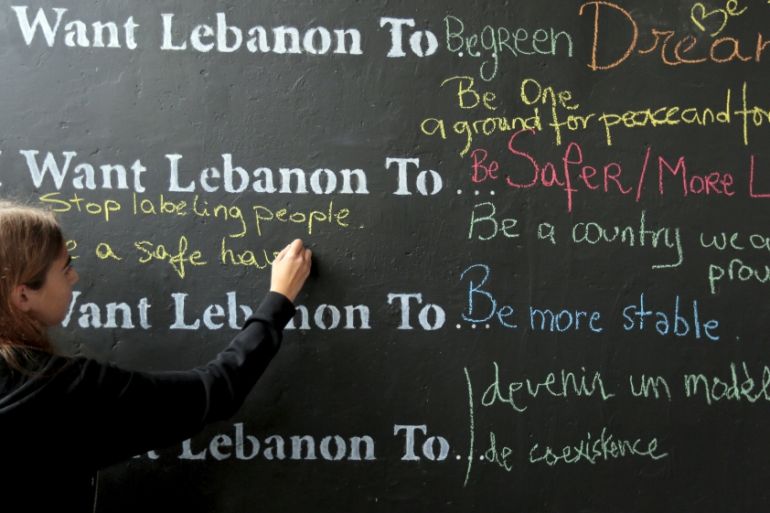 Want Lebanon To... Be green Dream
Be
Be One
a ground for peace and for
I Want Lebanon To... Be Safer/More L
Stop labeling people.
a safe hav
Be a country we a
prou
Want Lebanon To... Be more stable.
devenir un modèl
Lebanon To... de coexistence